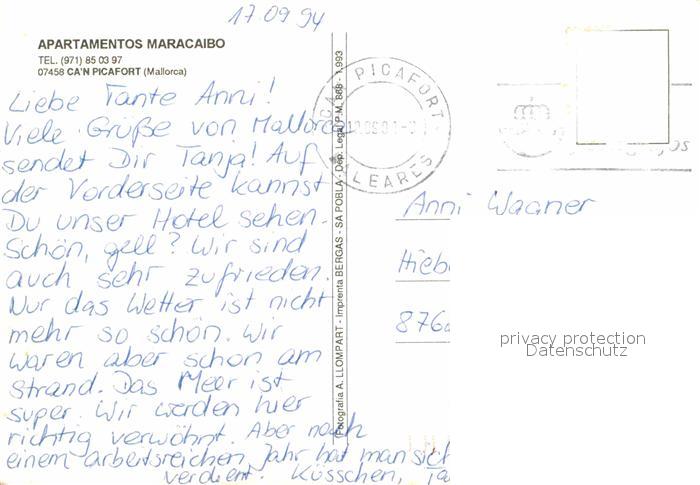 17.09.94
APARTAMENTOS MARACAIBO
TEL. (971) 85 03 97
07458 CA'N PICAFORT (Mallorca)
Liebe Tante Anni!
Viele Grüße von Mallorca
sendet Dir Tanja! Auf
der Vorderseite kannst
Du unser Hotel sehen.
Schön, gell? Wir sind
auch sehr zufrieden.
Nur das Wetter ist nicht
mehr so schön. Wir
waren aber schon am
Strand. Das Meer ist
super. Wir werden hier
richtig verwöhnt. Aber nach
einem arbeitsreichen Jahr hat man sich
verdient. Küsschen, Ta
Fotografía A. LLOMPART - Imprenta BERGAS - SA POBLA - Dep. Legal P.M. 888 - 1.993
PICAFORT
BALEARES
Anni Wagner
Hieb
876
privacy protection
Datenschutz